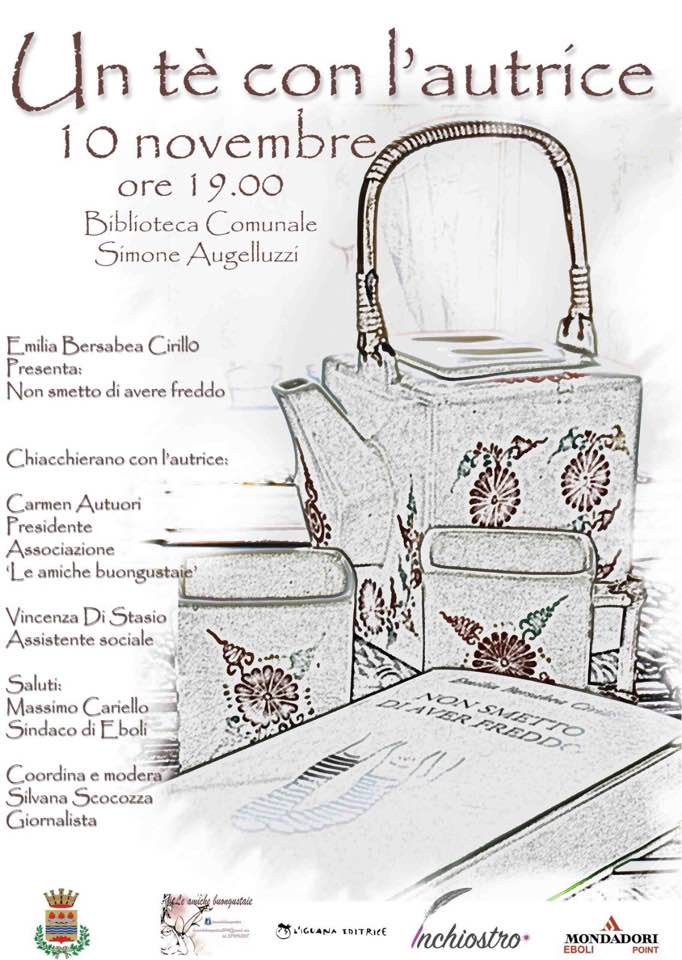 Un tè con l'autrice
10 novembre
ore 19.00
Biblioteca Comunale
Simone Augelluzzi
Emilia Bersabea Cirillo
Presenta:
Non smetto di avere freddo
Chiacchierano con l'autrice:
Carmen Autuori
Presidente
Associazione
'Le amiche buongustaie'
Vincenza Di Stasio
Assistente sociale
Saluti:
Massimo Cariello
Sindaco di Eboli
Coordina e modera
Silvana Scocozza
Giornalista
Emilia Bersabea Cirillo
NON SMETTO
DI AVER FREDDO
Le amiche buongustaie
L'IGUANA EDITRICE
Inchiostro
MONDADORI
EBOLI POINT